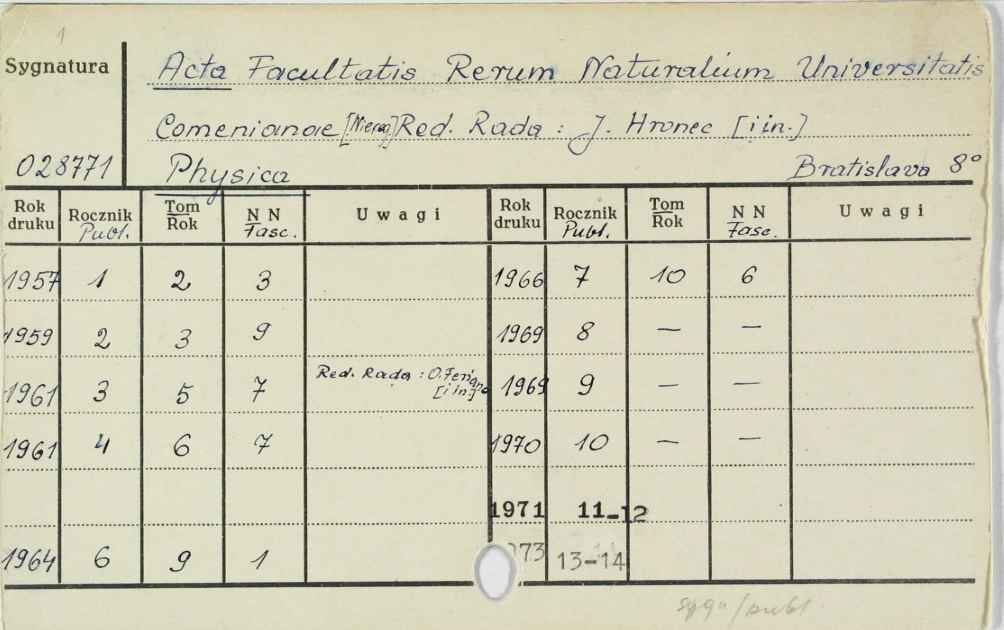 1
Sygnatura
Acta Facultatis Rerum Naturalium Universitatis
Comenianae Red. Rada : J. Hronec [i in.]
028771 Physica Bratislava 8°
Rok druku Rocznik Publ. Tom Rok NN Fasc. Uwagi Rok druku Rocznik Publ. Tom Rok NN Fasc. Uwagi
1957 1 2 3 1966 7 10 6
1959 2 3 9 1969 8 — —
1961 3 5 7 Red. Rada : O. [i in.] 1969 9 — —
1961 4 6 7 1970 10 — —
1971 11-12
1964 6 9 1 73 13-14